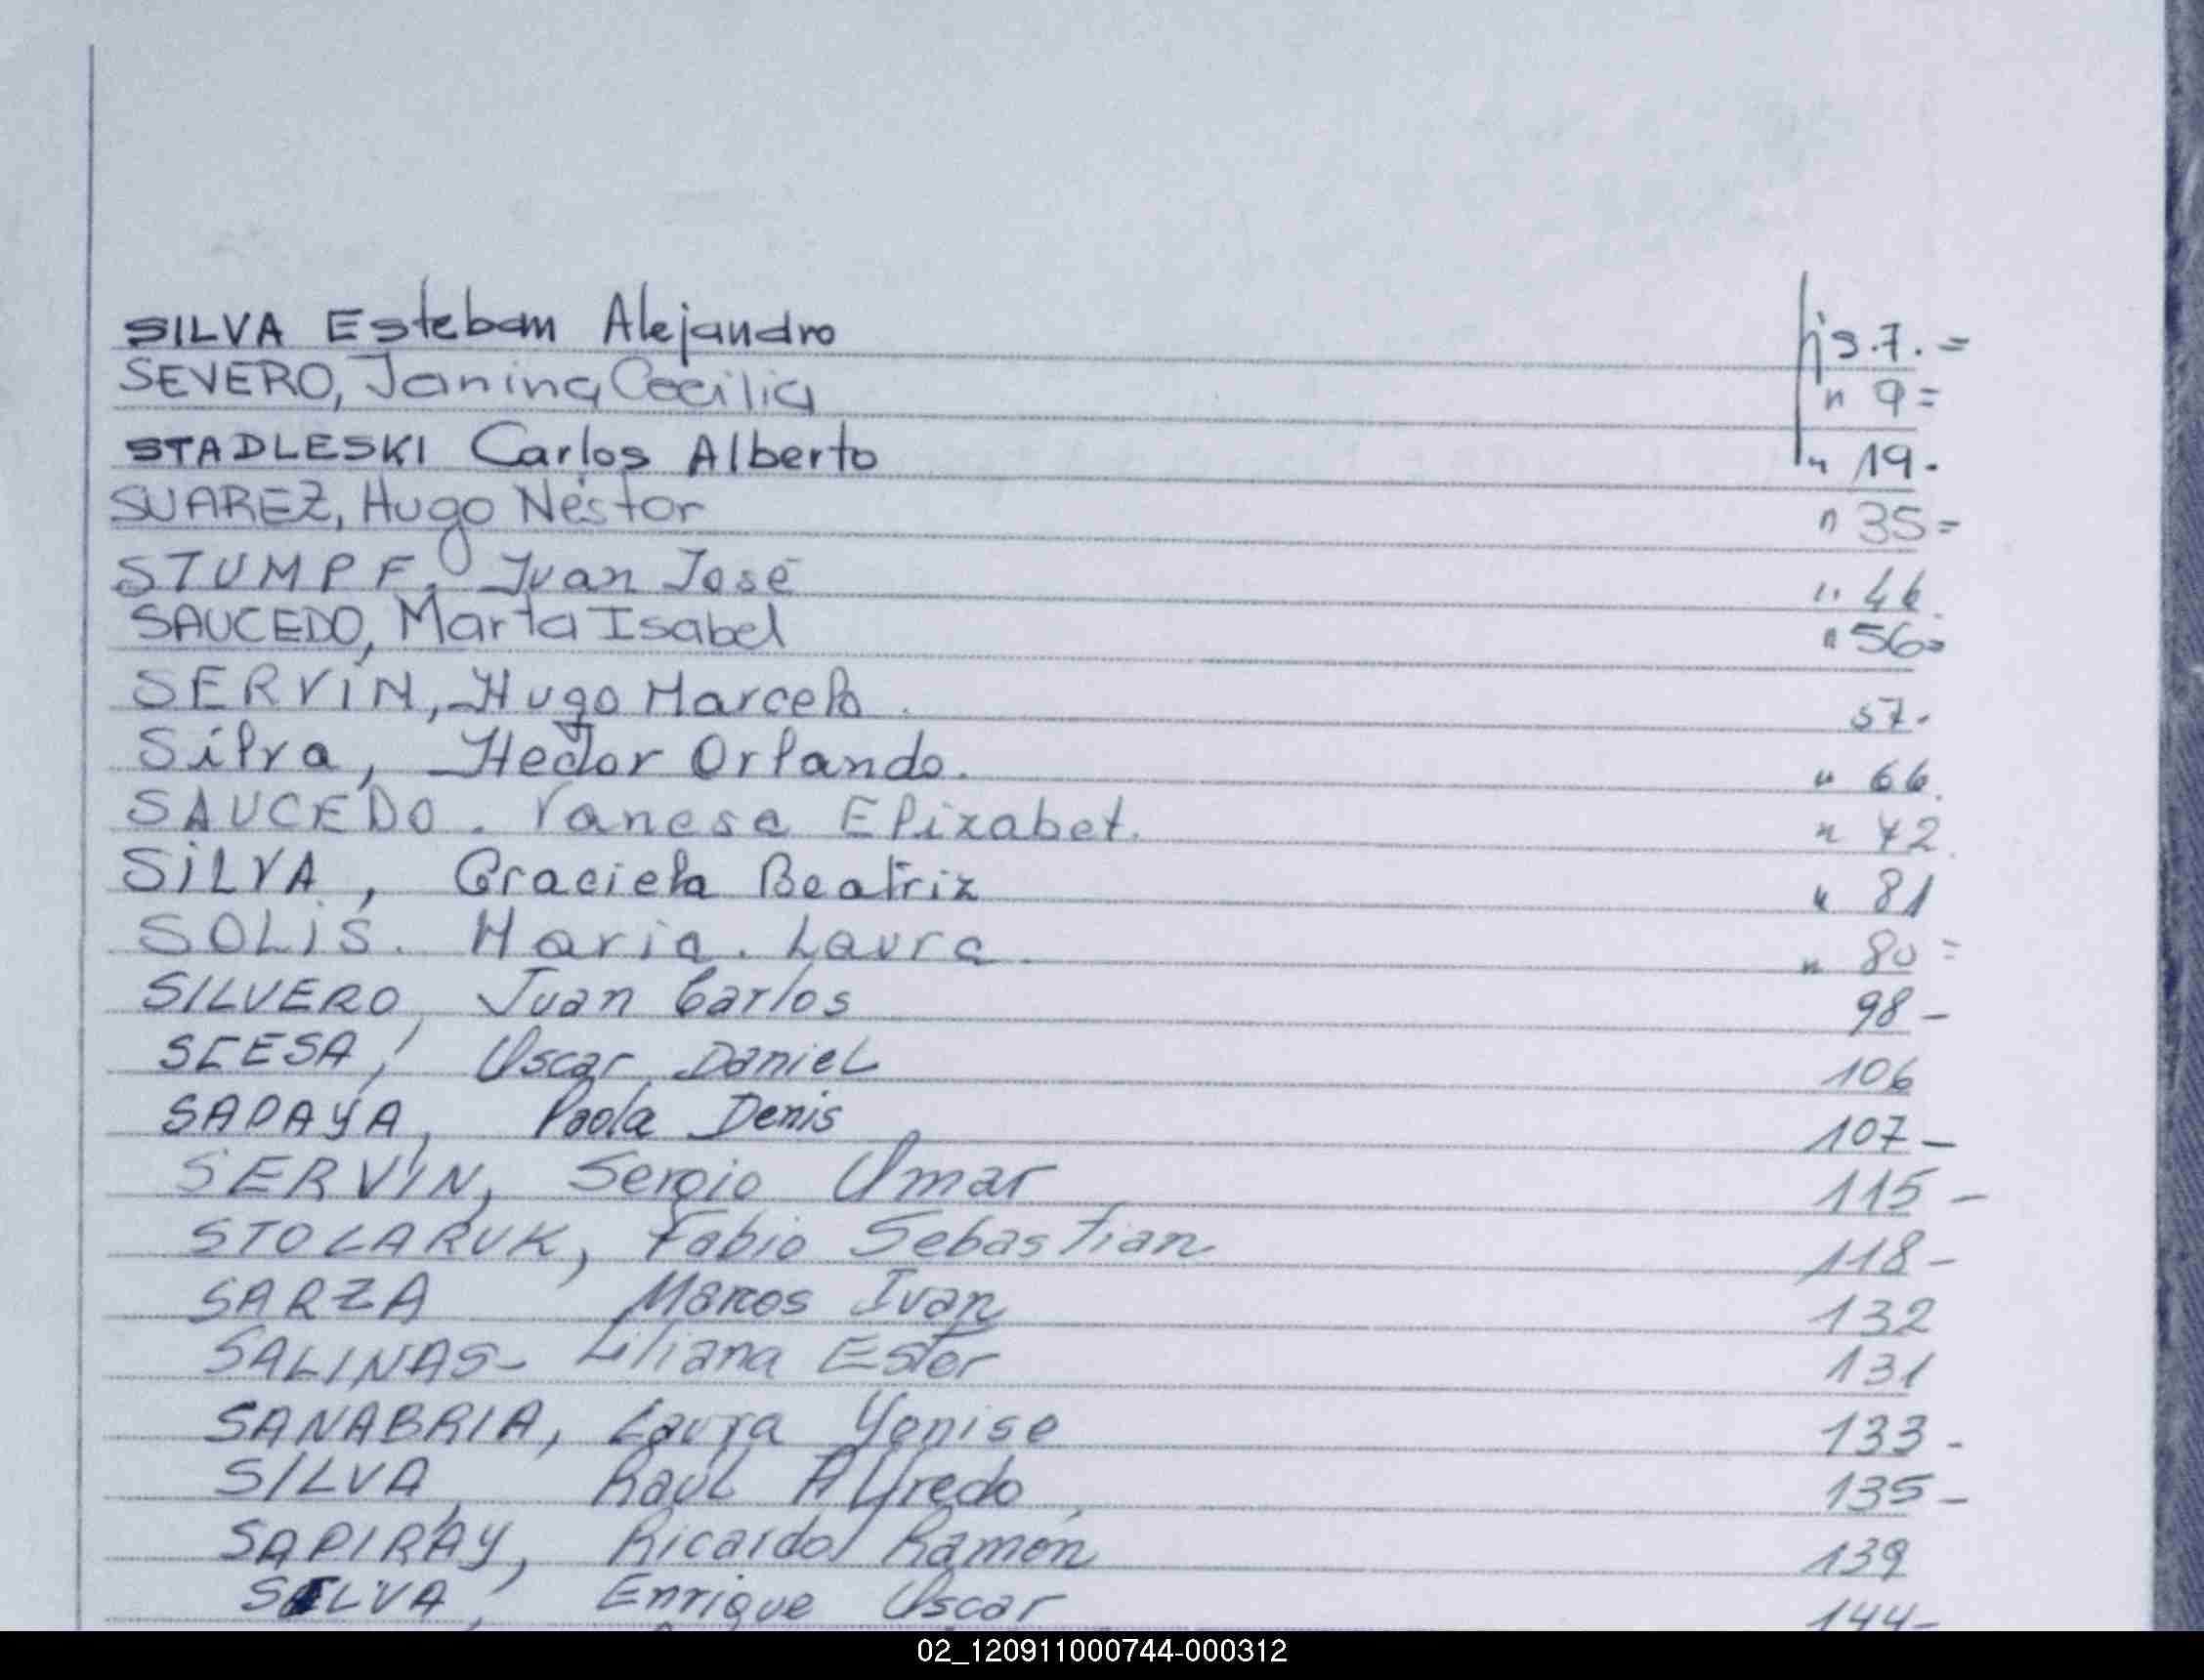 SILVA Esteban Alejandro fjs.7.=
SEVERO, Janina Cecilia " 9=
STADLESKI Carlos Alberto " 19.
SUAREZ, Hugo Néstor " 35=
STUMPF. Juan José " 46.
SAUCEDO, Marta Isabel " 56=
SERVIN, Hugo Marcelo. 57.
Silva, Hector Orlando. " 66.
SAUCEDO. Vanesa Elizabet. " 72.
SILVA, Graciela Beatriz " 81
SOLIS. Maria. Laura. " 80=
SILVERO, Juan Carlos 98-
Oscar Daniel 106
SAPAYA, Paola Denis 107-
SERVIN, Sergio Omar 115-
STOLARUK, Fabio Sebastian 118-
SARZA Marcos Ivan 132
SALINAS- Liliana Ester 131
SANABRIA, Laura Yonise 133-
SILVA, Raúl Alfredo 135-
SAPIRAY, Ricardo Ramón 139
SILVA, Enrique Oscar 144-
02_120911000744-000312